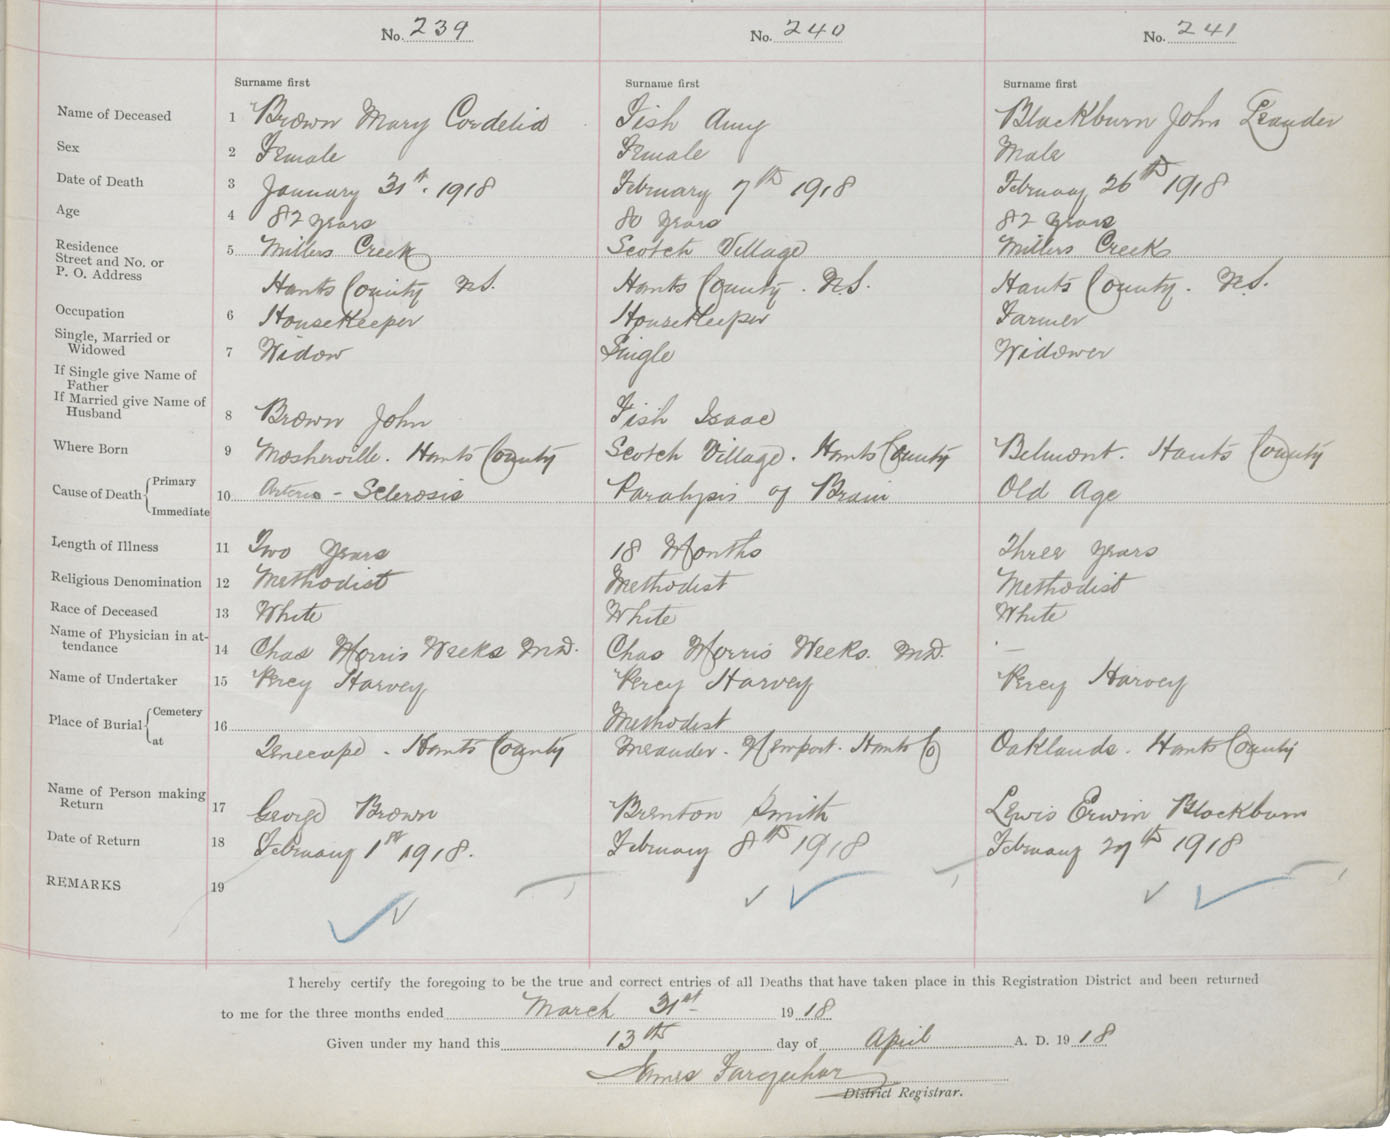 No. 239 No. 240 No. 241
Surname first Surname first Surname first
Name of Deceased 1 Brown Mary Cordelia Fish Amy Blackburn John Leander
Sex 2 Female Female Male
Date of Death 3 January 31st. 1918 February 7th 1918 February 26th 1918
Age 4 82 years 80 years 82 years
Residence
Street and No. or 5 Millers Creek Scotch Village Millers Creek
P. O. Address
Hants County N.S. Hants County. N.S. Hants County. N.S.
Occupation 6 HouseKeeper HouseKeeper Farmer
Single, Married or
Widowed 7 Widow Single Widower
If Single give Name of
Father
If Married give Name of
Husband 8 Brown John Fish Isaac
Where Born 9 Mosherville. Hants County Scotch Village. Hants County Belmont. Hants County
Cause of Death Primary 10 Arterio - Sclerosis Paralysis of Brain Old Age
Immediate
Length of Illness 11 Two years 18 Months Three years
Religious Denomination 12 Methodist Methodist Methodist
Race of Deceased 13 White White White
Name of Physician in at-
tendance 14 Chas Morris Weeks M.D. Chas Morris Weeks. M.D. —
Name of Undertaker 15 Percy Harvey Percy Harvey Percy Harvey
Place of Burial Cemetery 16 Methodist
at Tenecape. Hants County Meander. Newport. Hants Co Oaklands. Hants County
Name of Person making
Return 17 George Brown Brenton Smith Lewis Erwin Blackburn
Date of Return 18 February 1st 1918. February 8th 1918 February 27th 1918
REMARKS 19
I hereby certify the foregoing to be the true and correct entries of all Deaths that have taken place in this Registration District and been returned
to me for the three months ended March 31st 1918
Given under my hand this 13th day of April A. D. 1918
James Farquhar
District Registrar.